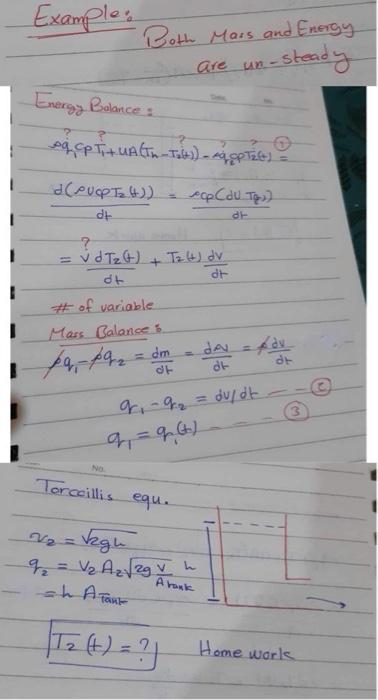 Example:
Both Mass and Energy
are un-steady
Energy Balance:
? ? ? ? ?
ρq₁CpT₁ + UA(Tₕ - T₂(t)) - ρq₂CpT₂(t) = ①
d(ρVCpT₂(t))/dt = ρCp(dV T₂(t))/dt
?
= V dT₂(t)/dt + T₂(t) dV/dt
# of variable
Mass Balance:
ρq₁ - ρq₂ = dm/dt = dρV/dt = ρ dV/dt
q₁ - q₂ = dV/dt --- ②
q₁ = q₁(t) ---- ③
No.
Torcillis equ.
v₂ = √2gh
q₂ = V₂ A₂ √2g V/Atank h
= h ATank
T₂(t) = ? Home work